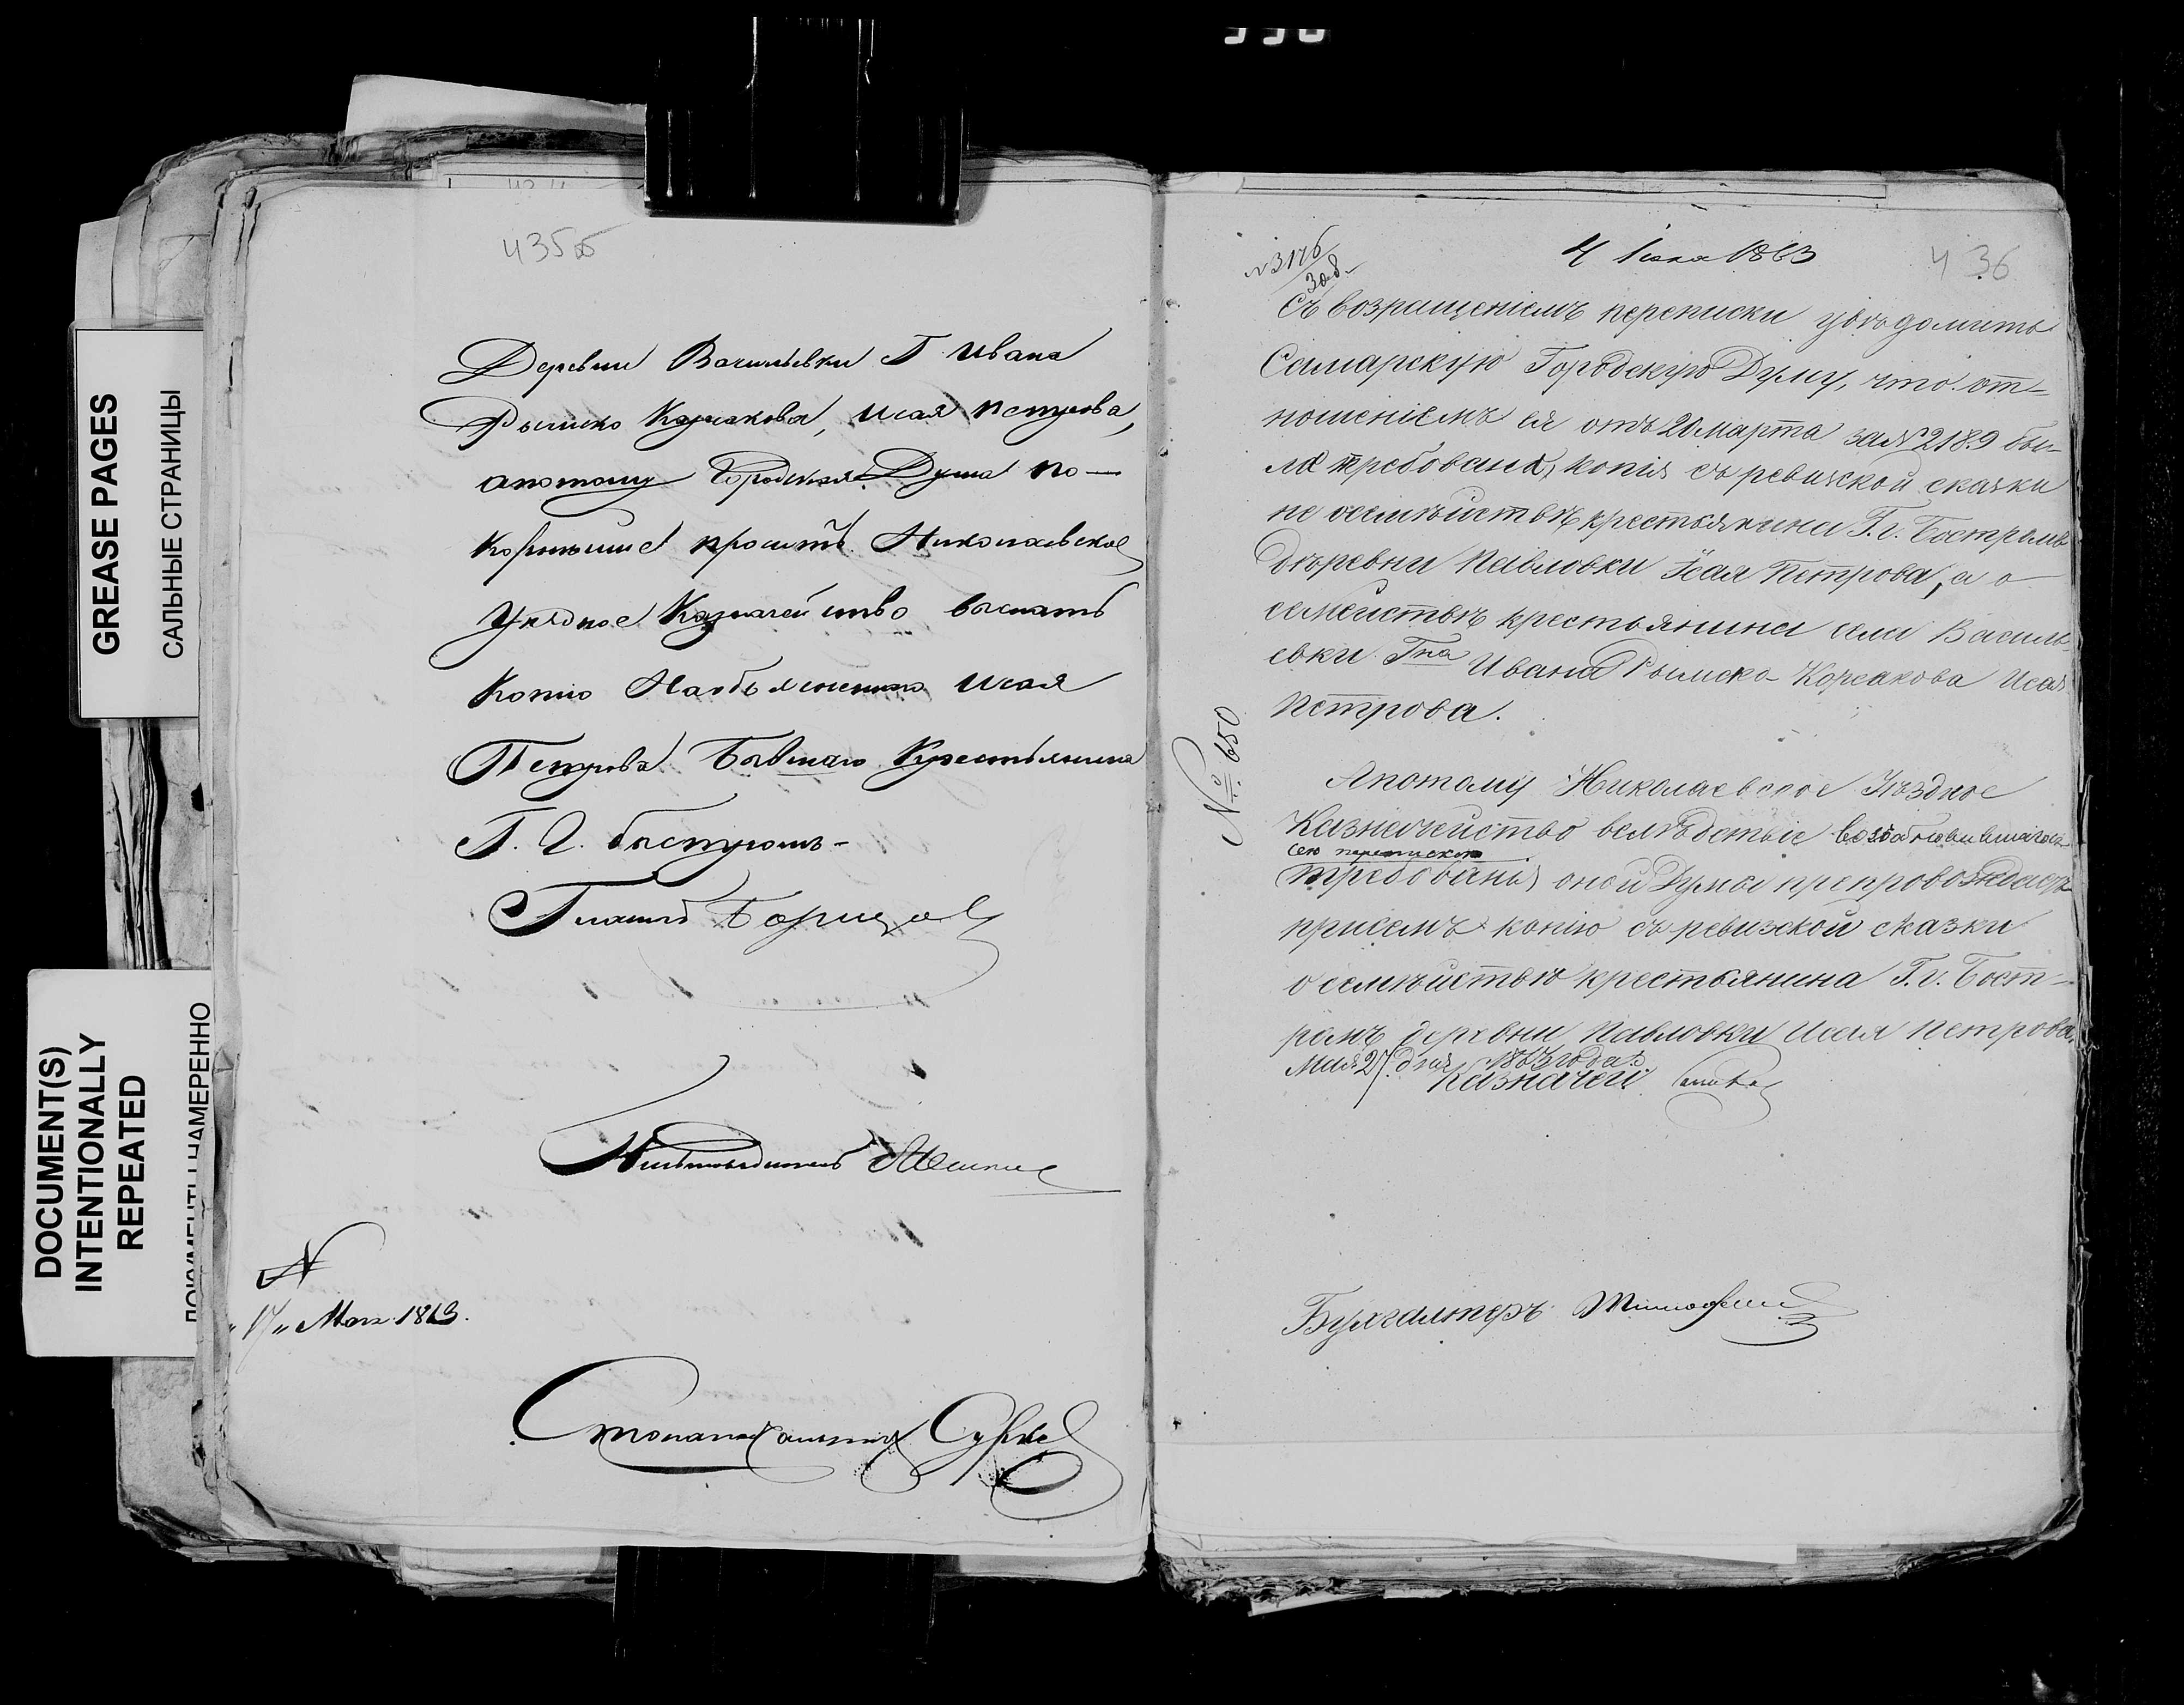 GREASE PAGES
САЛЬНЫЕ СТРАНИЦЫ
DOCUMENT(S)
INTENTIONALLY
REPEATED
435об
Деревни Васильевки Г. Ивана
Рымско Карсакова, Исая Петрова,
апотому Городская Дума по-
корнѣише проситъ Николаевское
Уѣздное Казначейство выслать
Копію
Исая
Петрова Бывшаго Крестьянина
Г. Г. Бостромъ-
Гласный
"17" Мая 1863.
Столоначальник
436
№ 3176
4 Іюня 1863
Съ возращеніемъ переписки увѣдомить
Самарскую Городскую Думу, что от-
ношеніемъ ея отъ 20 марта за № 2189 бы-
ла требована, копія съ ревизской сказки
не осемѣйствѣ крестьянина Г. г. Бострамъ
Дѣревни Павловки Исая Петрова, а о
семействѣ крестьянина села Василь
евки Гна Ивана Рымско-Корсакова Исая
Петрова.
№ 650
Апотому Николаевское Уѣздное
Казначейство вслѣдствіе возобновившагося
сею перепискою
требованія оной Думы препровождаетъ
присемъ копію съ ревизской сказки
о семѣйствѣ крестьянина Г. г. Бост-
рамъ деревни Павловки Исая Петрова.
Мая 27 дня 1863 года.
Казначей
Бухгалтеръ